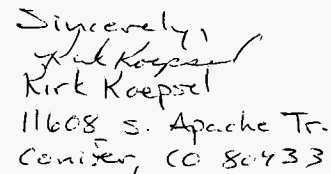 Sincerely,
Kirk Koepsel
Kirk Koepsel
11608 S. Apache Tr.
Conifer, CO 80433